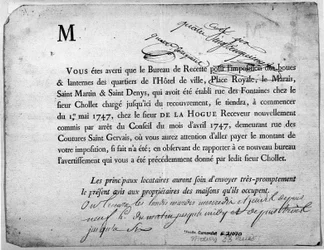 M
Vous êtes averti que le Bureau de Recette pour l'imposition des boues
& lanternes des quartiers de l'Hôtel de ville, Place Royale, le Marais,
Saint Martin & Saint Denys, qui avoit été établi rue des Fontaines chez le
sieur Chollet chargé jusqu'ici du recouvrement, se tiendra, à commencer
du 1er mai 1747, chez le sieur DE LA HOGUE Receveur nouvellement
commis par arrêt du Conseil du mois d'avril 1747, demeurant rue des
Coutures Saint Gervais, où vous aurez attention d'aller payer le montant de
votre imposition, si fait n'a été; en observant de rapporter à ce nouveau bureau
l'avertissement qui vous a été précédemment donné par ledit sieur Chollet.
Les principaux locataires auront soin d'envoyer très-promptement
le présent avis aux propriétaires des maisons qu'ils occupent.
les lundis mardis mercredis et jeudis depuis
neuf h. du matin jusqu'à midy et depuis
jusqu'à